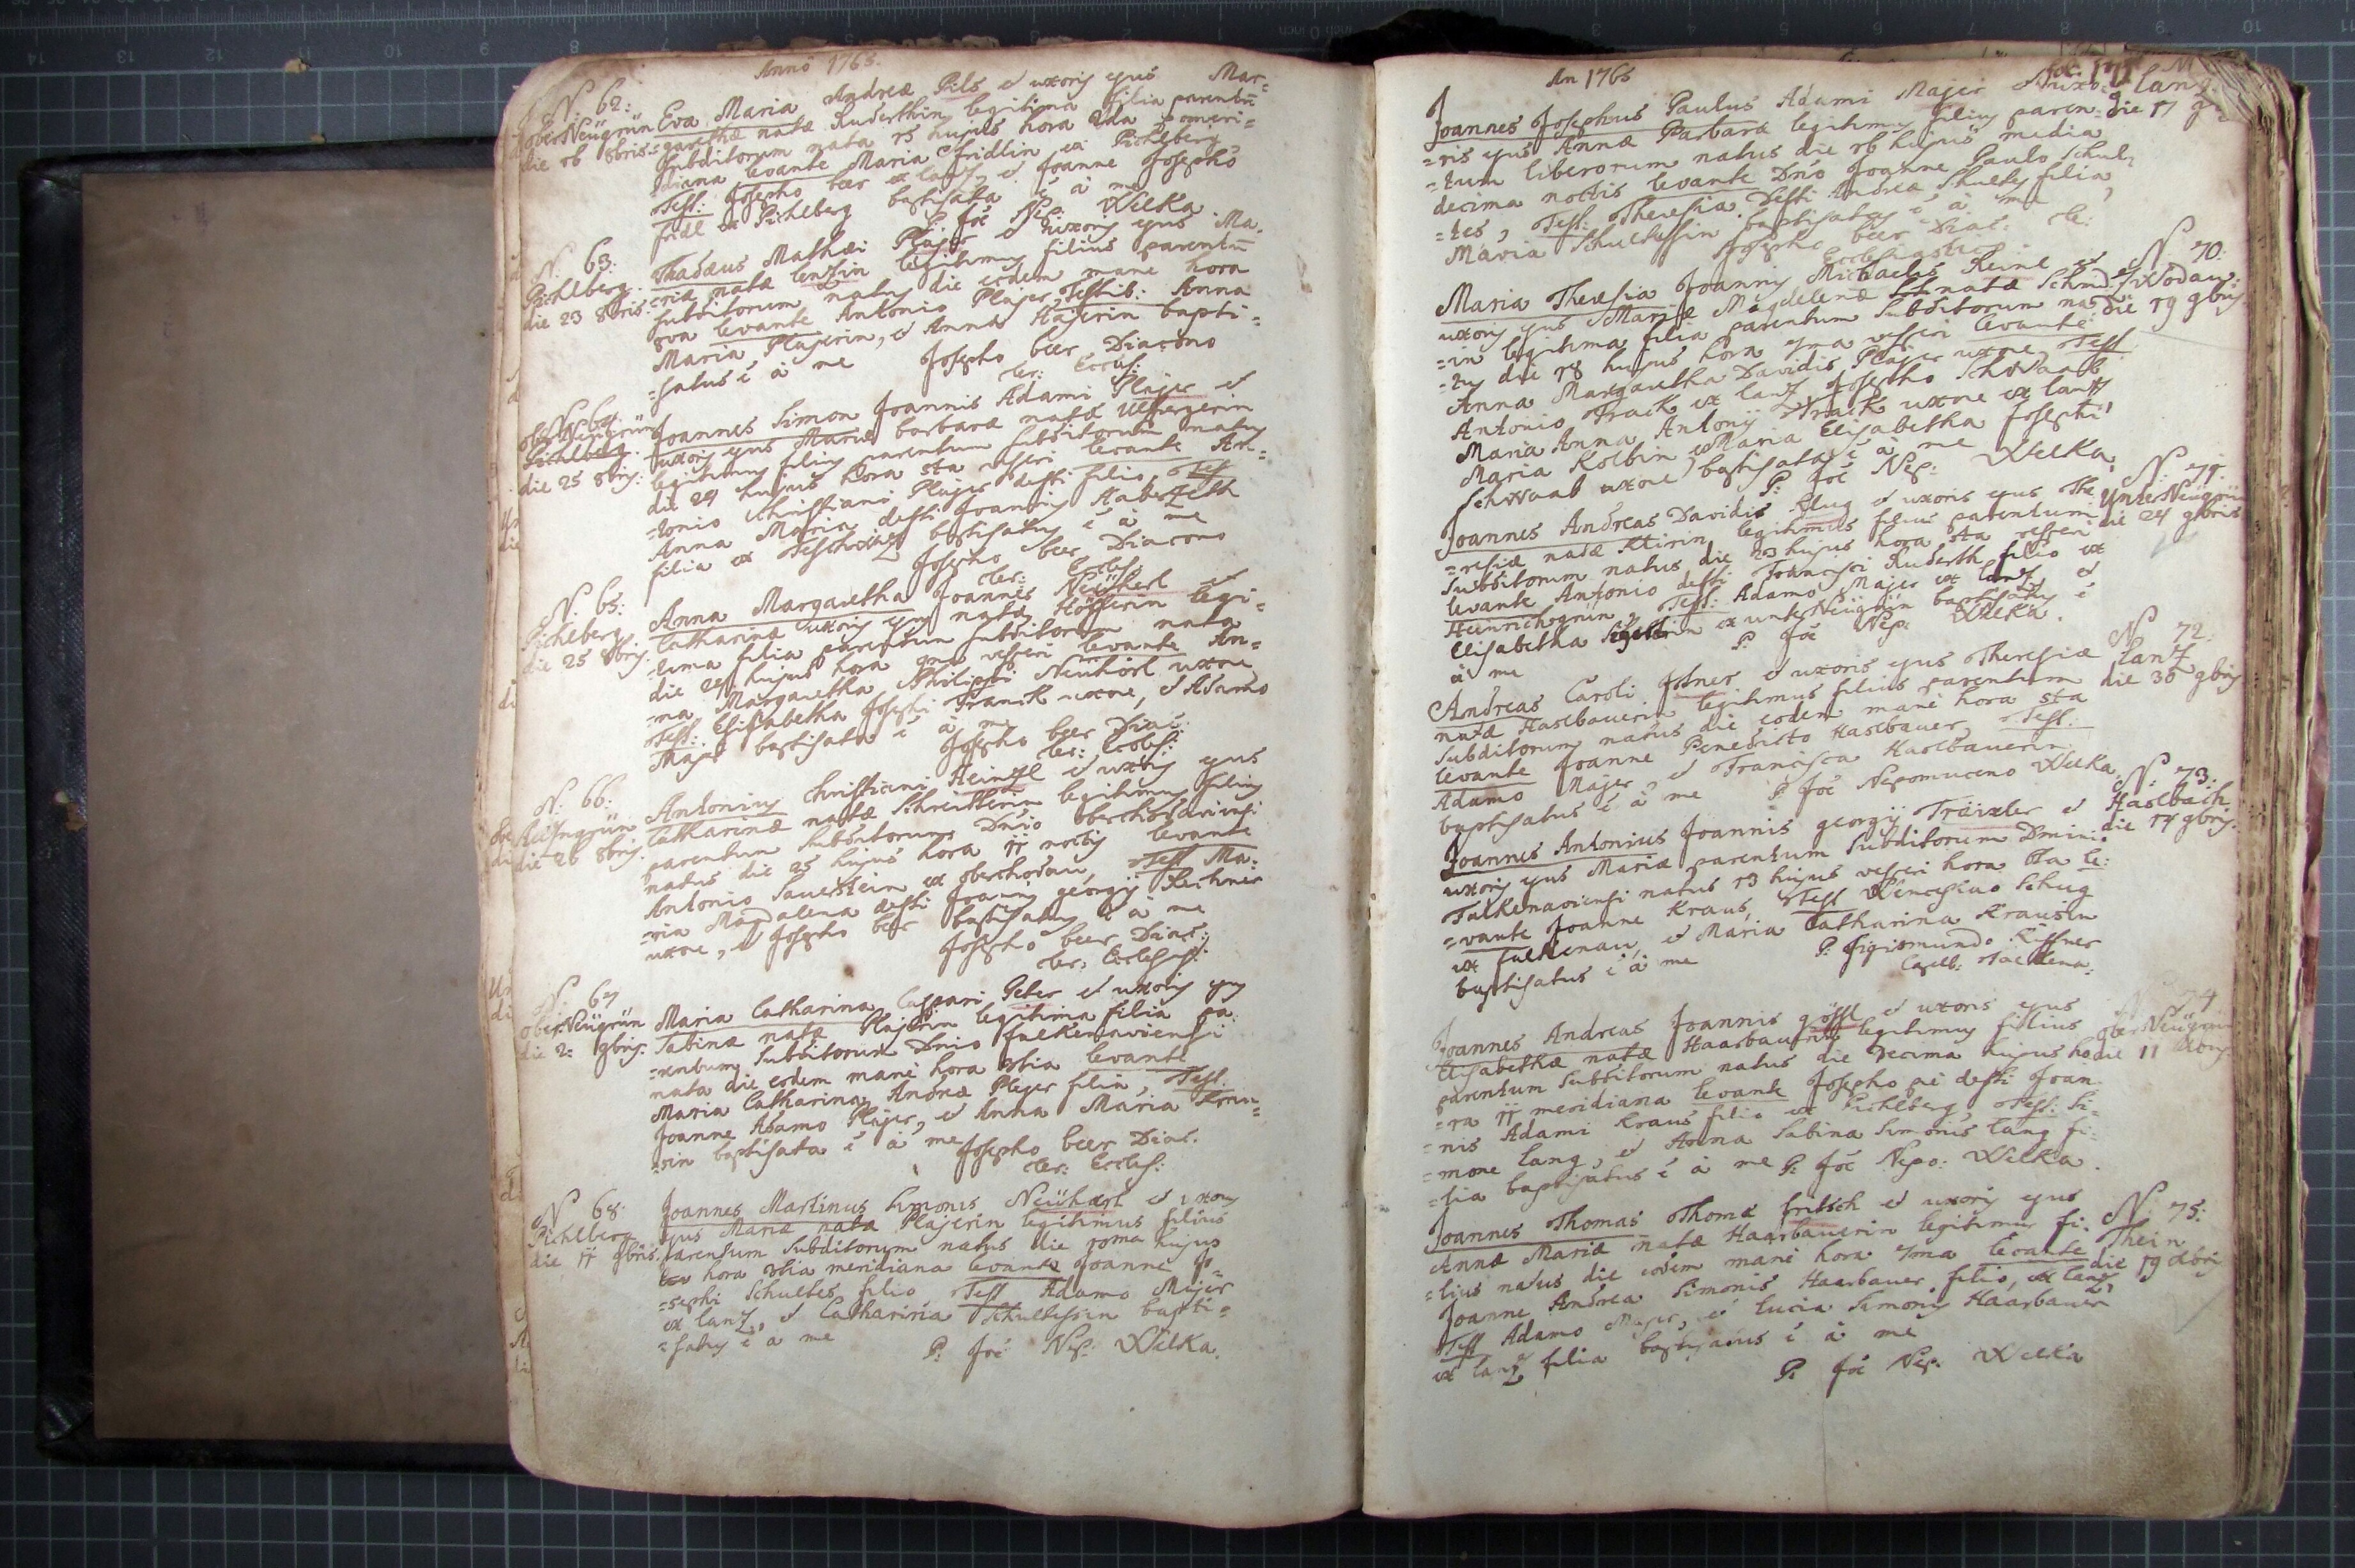 Anno 1765.
N: 62:
oberNeügrün
die 16 8bris:
Eva Maria Andreæ Pils et uxoris ejus Mar-
=garethæ natæ Ruderthin legitima filia parentu
subditorum nata 15 hujus hora 2da pomeri=
diana levante Maria fridlin ex Pichlberg
Test: Josepho beer ex lanz, et Joanne Josepho
fridl ex Pichlberg baptisata ē à me
P: Joē Nep: Welka
N: 63:
Pichlberg.
die 23 8bris:
Thadæus Mathæi Plajer et uxoris ejus Ma-
=riæ natæ lenzin legitimus filius parentu
subditorum natus die eodem mane hora
8va levante Antonio Plajer, Testib: Anna
Maria Plajerin, et Anna Majerin bapti=
=satus ē à me Josepho beer Diacono
ter: Eccles:
N: 64:
ober Neugrün
Pichlberg.
die 25 8bris:
Joannes Simon Joannis Adami Plajer et
uxoris ejus Mariæ barbaræ natæ
legitimus filius parentum subditorum natus
die 24 hujus hora 5ta vesperi levante An=
=tonio Christiani Plajer defti filio, Test
Anna Maria defti Joannis
filia ex baptisatus ē à me
Josepho beer Diacono
ter: Eccles:
N: 65:
Pichlberg
die 25 8bris.
Anna Margaretha Joannes Neükerl et
Catharinæ uxoris ejus natæ Höfferin legi=
=tima filia parentum subditorum nata
die 24 hujus hora vesperi levante An=
=na Margaretha Philippi Neuhörl uxore
Test: Elisabetha Josephi Franck uxore, et Adamo
Majer baptisata ē à me
Josepho beer Diac:
ter: Eccles:
N: 66:
die 26 8bris.
Antonius Christiani Heinzl et uxoris ejus
Catharinæ natæ Schreitterin legitimus filius
parentum subditorum Dnio oberchodaviensi
natus die 25 hujus hora 11 noctis levante
Antonio Sauerstein ex oberchodau, Test Ma=
=ria Magdalena defti Joannis georgij Kechner
uxore, et Josepho beer baptisatus ē à me
Josepho beer Diac:
ter: Ecclesis:
N: 67
oberNeügrün
die 2: 9bris:
Maria Catharina Caspari Peter et uxoris ejus
Sabinæ natæ Plajerin legitima filia pa-
=rentum subditorum Dnio falkenaviensi
nata die eodem mane hora 3tia levante
Maria Catharina Andreæ Plejer filia, Test.
Joanne Adamo Plajer, et Anna Maria Krau=
=sin baptisata ē à me Josepho beer Diac.
ter: Eccles:
N 68:
Pichlberg
die 11 9bris.
Joannes Martinus Simonis Neühærl et uxoris
ejus Mariæ nata Plajerin legitimus filius
parentum subditorum natus die 10ma hujus
hora 3tia meridiana levante Joanne Jo=
=sephi Schultes filio Test Adamo Majer
ex lanz, et Catharina Schultessin bapti=
=satus ē à me
P: Joē Nep: Welka.
An 1765
lanz
die 17 9
Joannes Josephus Paulus Adami Majer et uxo-
=ris ejus Annæ Barbaræ legitimus filius paren-
=tum liberorum natus die 16 hujus media
decima noctis levante Dno Joanne Paulo Schul=
=tes, Test: Theresia defti Andreæ Schultes filia,
Maria Schultessin baptisatus ē à me
Josepho beer Diac: te:
N 70:
die 19 9bris
Maria Theresia Joannis Michaelis Keinl et
uxoris ejus Mariæ Magdelenæ natæ Schmid=
=in legitima filia parentum subditorum na=
=ta die 18 hujus hora vesperi levante
Anna Margaretha Davidis Plajer uxore Test
Antonio Frack ex lanz Josepho Schwaab
Maria Anna Antonij Frack uxore ex lanz
Maria Kolbin et Maria Elisabetha Josephi
Schwaab uxore baptisata ē à me
P: Joē Nep: Welka
N: 71.
UnterNeügrün
die 24 9bris
Joannes Andreas Davidis Klug et uxoris ejus The
=resiæ natæ legitimus filius parentum
Subditorum natus die 23 hujus hora 5ta vesperi
levante Antonio defti Francisci Ruderth filio ex
Heinrichsgrün, Test: Adamo Majer ex lanz et
Elisabetha ex unterNeügrün baptisatus ē
à me P. Joē Nep: Welka.
N 72:
lanz
die 30 9bris
Andreas Caroli et uxoris ejus Theresiæ
natæ Haslbauerin legitimus filius parentum
Subditorum natus die eodem mane hora 5ta
levante Joanne Benedicto Haslbauer, Test:
Adamo Majer, et Francisca Haslbauerin
baptisatus ē à me P. Joē Nepomuceno Welka
N. 73:
Haslbach
die 14 9bris.
Joannes Antonius Joannis georgij Träixler et
uxoris ejus Mariæ parentum Subditorum Dmini:
Falkenaviensi natus 13 hujus vesperi hora 6ta le:
=vante Joanne Kraus, Test Wenceslao Schug
ex falkenau, et Maria Catharina Krausin
baptisatus ē à me P: Sigismundo Kiffner
Capell:
N 74
OberNeügrün
die 11 Xbris
Joannes Andreas Joannis gössl et uxoris ejus
Elisabethæ natæ Haarbaurin legitimus filius
parentum Subditorum natus die decima hujus ho
=ra 11 meridiana levante Josepho defti Joan
=nis Adami Kraus filio ex Pichlberg, Test: Si=
=mone lang, et Anna Sabina Simonis lang fi=
=lia baptisatus ē à me P: Joē Nepo: Welka.
N. 75:
Thein
die 19 Xbris
Joannes Thomas Thomæ fritsch et uxoris ejus
Annæ Mariæ natæ Haarbauerin legitimus fi-
=lius natus die eodem mane hora 7ma levante
Joanne Andrea Simonis Haarbauer filio, ex lanz
Test Adamo Majer, et lucia Simonis Haarbauer
ex lanz filia baptisatus ē à me
P: Joē Nep: Welka